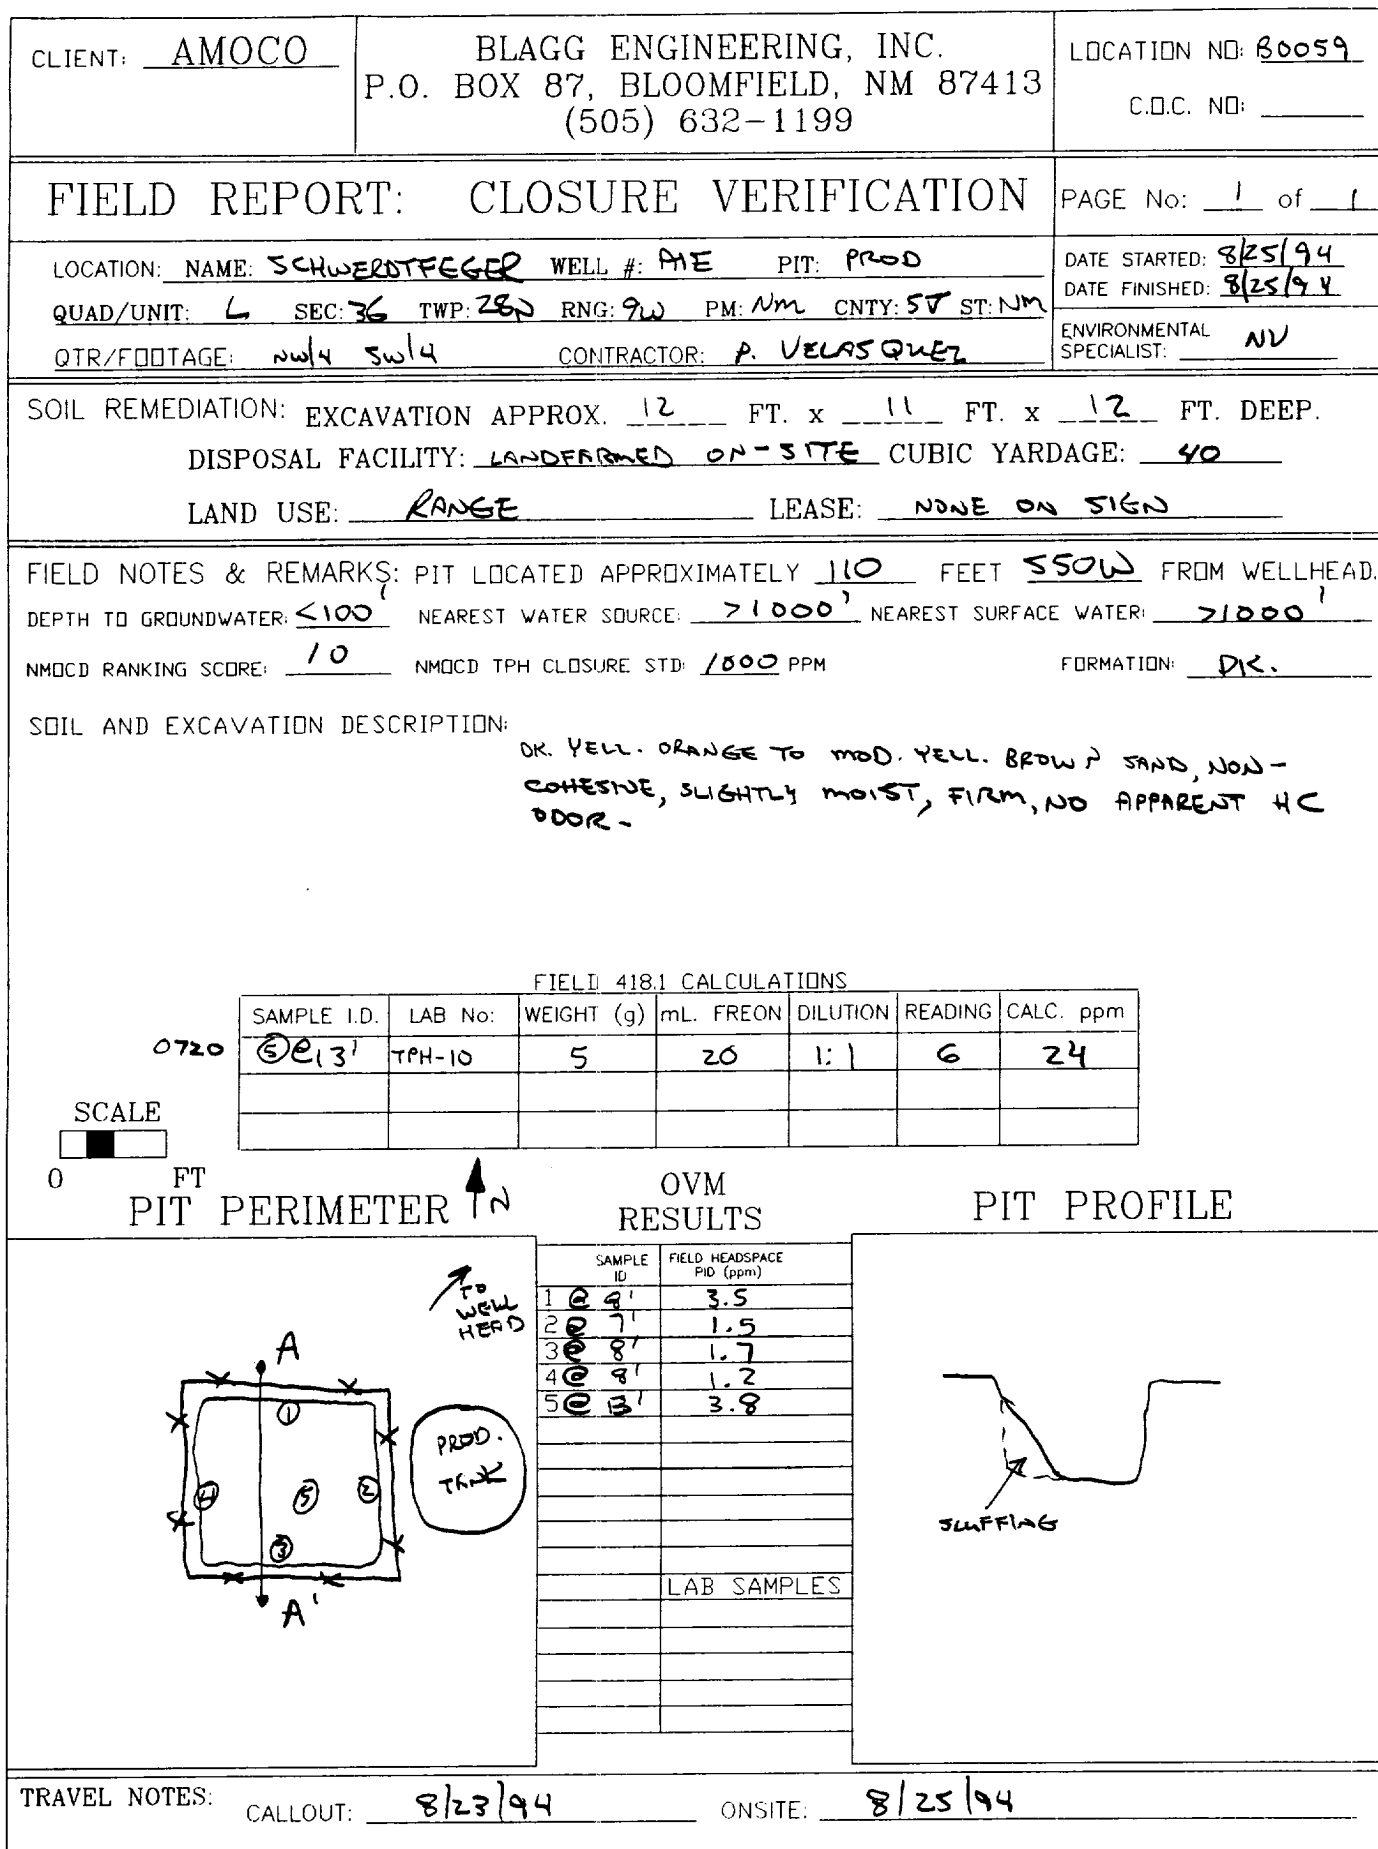 CLIENT: AMOCO
BLAGG ENGINEERING, INC.
P.O. BOX 87, BLOOMFIELD, NM 87413
(505) 632-1199
LOCATION NO: B0059
C.O.C. NO:
FIELD REPORT: CLOSURE VERIFICATION
PAGE No: 1 of 1
LOCATION: NAME: SCHWERDTFEGER WELL #: A1E PIT: PROD
QUAD/UNIT: L SEC: 36 TWP: 28N RNG: 9W PM: NM CNTY: SJ ST: NM
QTR/FOOTAGE: NW/4 SW/4 CONTRACTOR: P. VELASQUEZ
DATE STARTED: 8/25/94
DATE FINISHED: 8/25/94
ENVIRONMENTAL
SPECIALIST: NV
SOIL REMEDIATION: EXCAVATION APPROX. 12 FT. x 11 FT. x 12 FT. DEEP.
DISPOSAL FACILITY: LANDFARMED ON-SITE CUBIC YARDAGE: 40
LAND USE: RANGE LEASE: NONE ON SIGN
FIELD NOTES & REMARKS: PIT LOCATED APPROXIMATELY 110 FEET S50W FROM WELLHEAD.
DEPTH TO GROUNDWATER: <100' NEAREST WATER SOURCE: >1000' NEAREST SURFACE WATER: >1000'
NMOCD RANKING SCORE: 10 NMOCD TPH CLOSURE STD: 1000 PPM FORMATION: DK.
SOIL AND EXCAVATION DESCRIPTION:
DK. YELL. ORANGE TO MOD. YELL. BROWN SAND, NON-
COHESIVE, SLIGHTLY MOIST, FIRM, NO APPARENT HC
ODOR-
FIELD 418.1 CALCULATIONS
SAMPLE I.D. LAB No: WEIGHT (g) mL. FREON DILUTION READING CALC. ppm
0720 5 @ 13' TPH-10 5 20 1:1 6 24
SCALE
0 FT
PIT PERIMETER N
OVM
RESULTS
PIT PROFILE
SAMPLE ID FIELD HEADSPACE PID (ppm)
1 @ 9' 3.5
2 @ 7' 1.5
3 @ 8' 1.7
4 @ 8' 1.2
5 @ 13' 3.8
LAB SAMPLES
TO
WELL
HEAD
A
1
4 5 2
3
A'
PROD.
TANK
SLUFFING
TRAVEL NOTES: CALLOUT: 8/23/94 ONSITE: 8/25/94